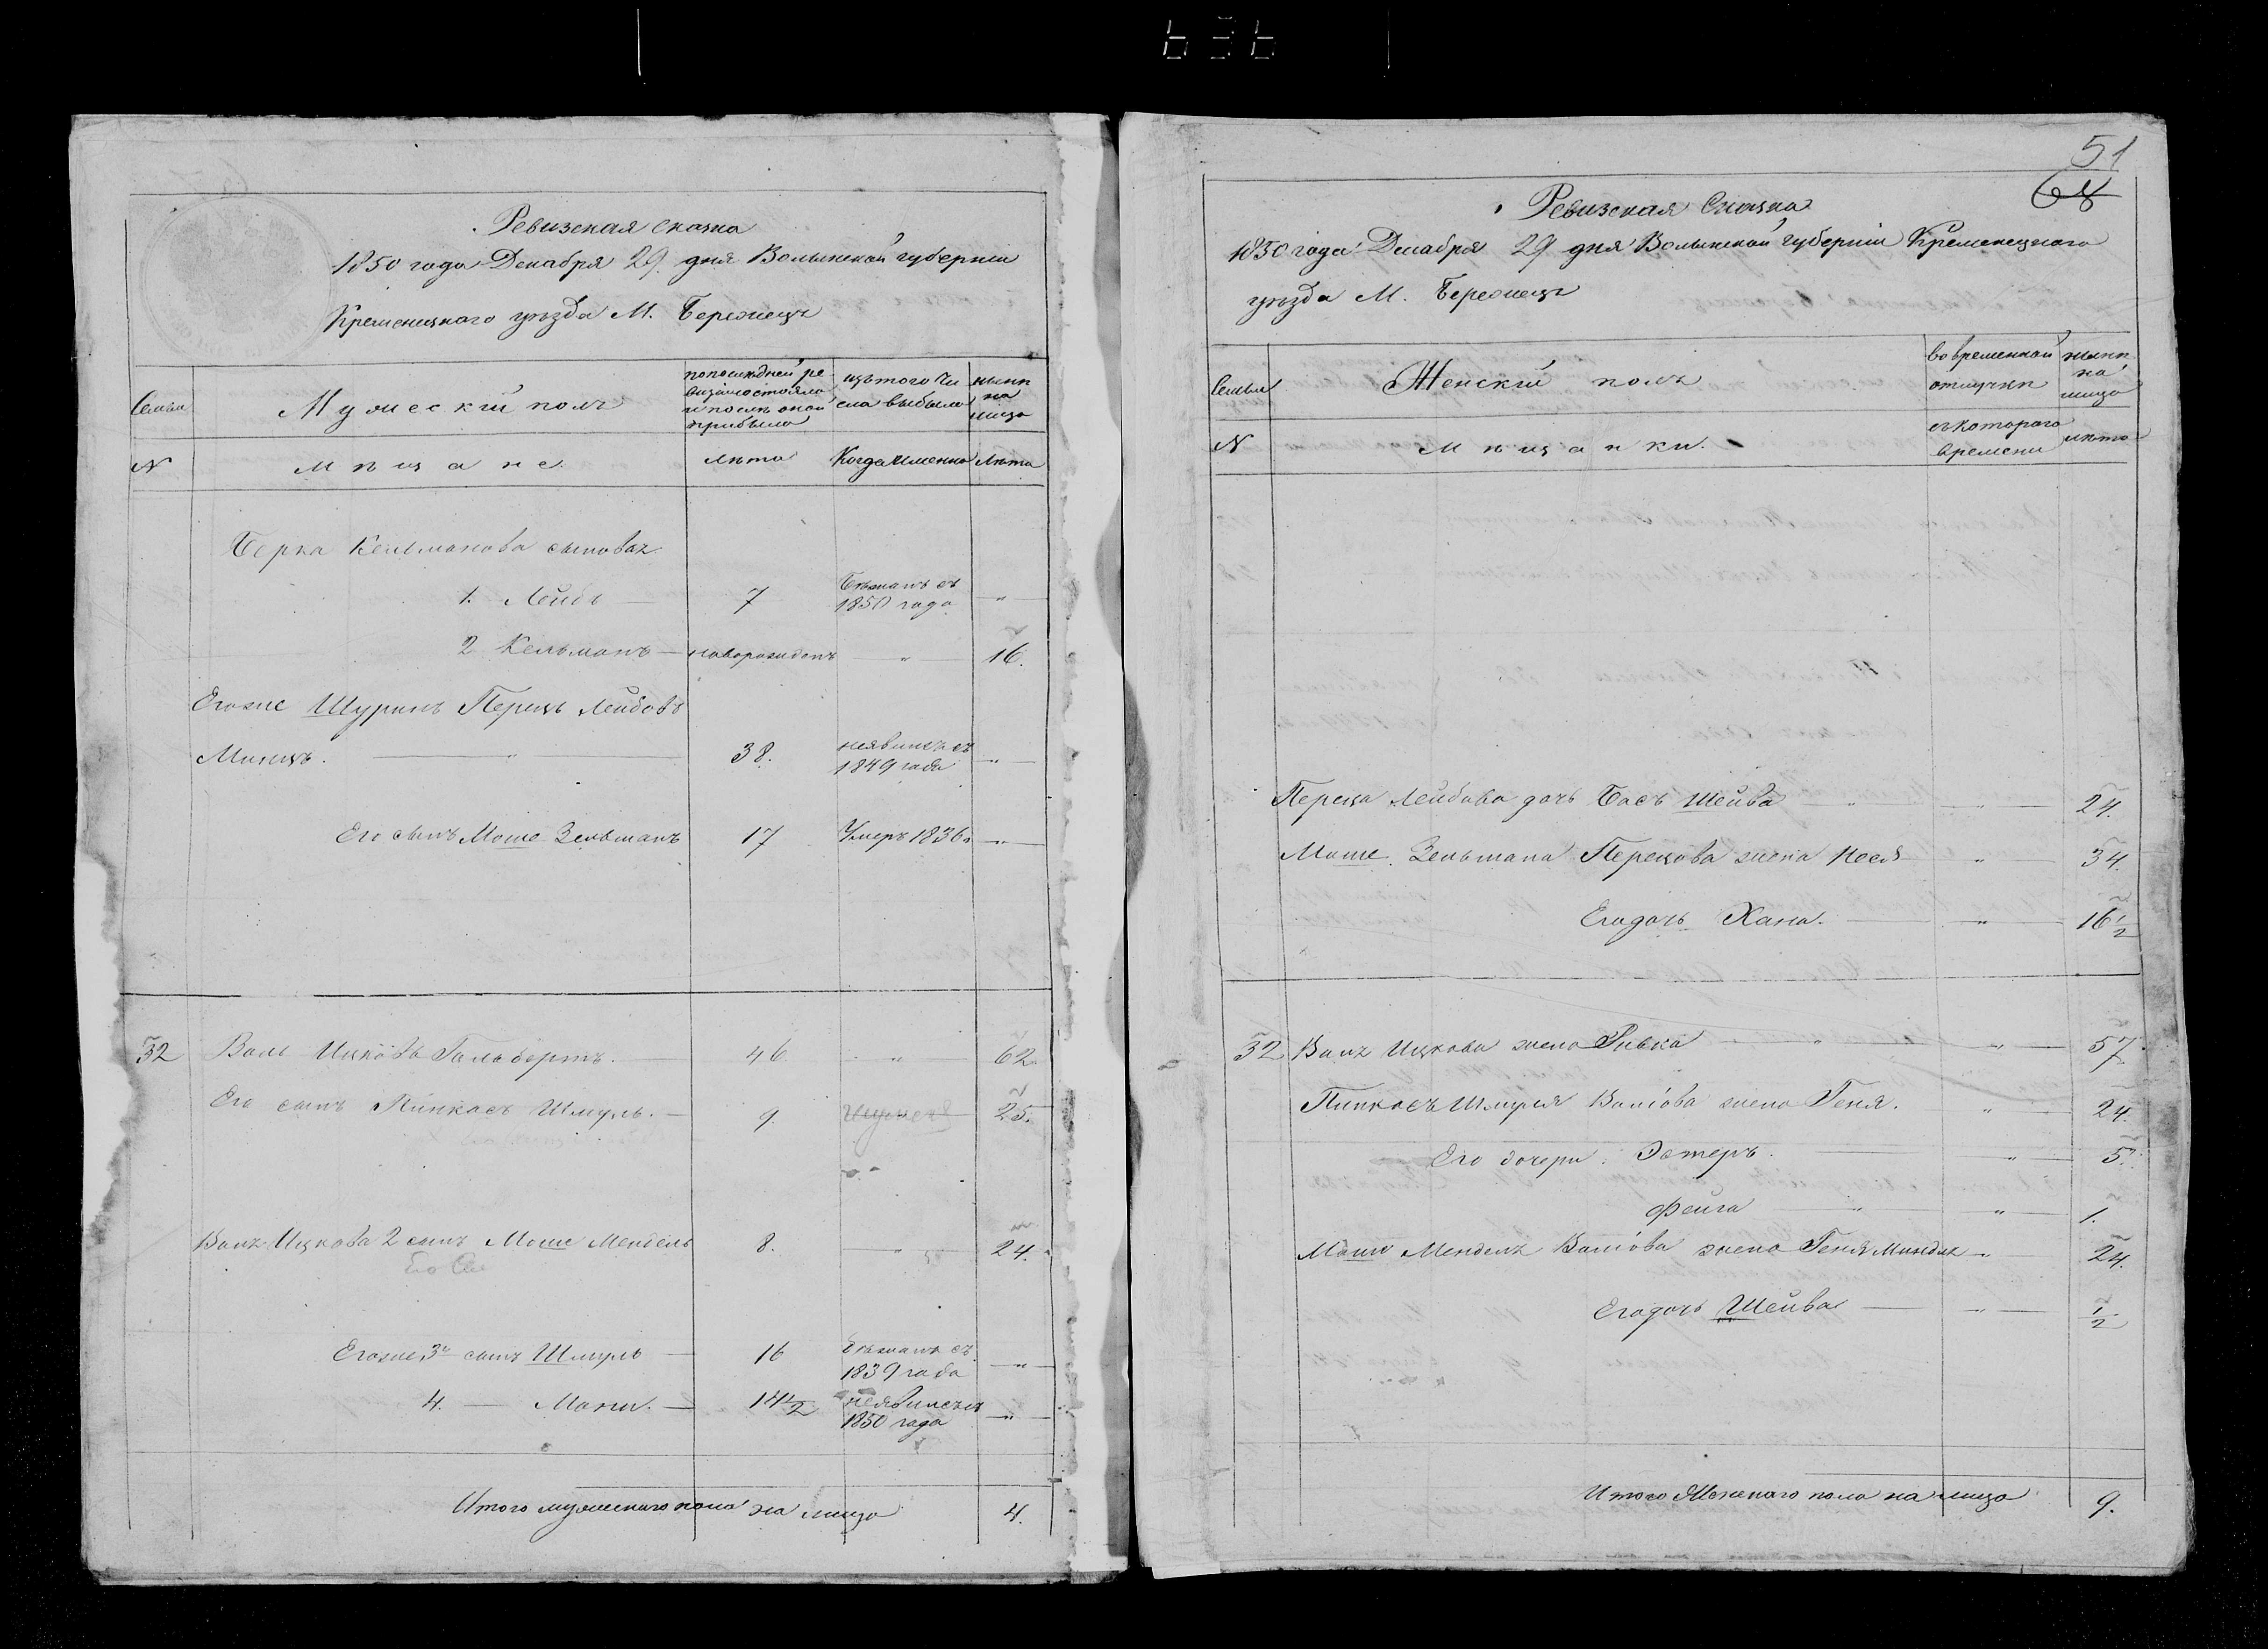 Ревизская Сказка
1850 года Декабря 29. дня Волынской губерніи
Кременецкаго уѣзда М. Бережецъ
Семьи
Мужескій полъ
по последней ре
визіи состояло
и послѣ оной
прибыло
изъ того чи
сла выбыло
нынѣ
на
лицо
№
Мѣщане
Лѣта
Когда именно
Лѣта
Берка Кельманова сыновья
1. Лейбъ 7 Бѣжалъ съ
1850 года "
2 Кельманъ новорожденъ " 16.
Егоже Шуринъ Перецъ Лейбовъ
Минцъ. " 38. неявился съ
1849 года "
Его сынъ Моше Зельманъ 17 Умеръ 1836 "
32 Валь Ицковъ Гальбертъ. 46 " 62.
Его сынъ Пинкасъ Шмуль. 9. 25.
Валъ Ицкова 2 сынъ Моше Мендель 8. " 24.
Егоже 3й сынъ Шмуль 16 Бѣжалъ съ
1839 года "
4. Мани. 14 1/2 неявился съ
1850 года "
Итого мужескаго пола на лицо 4.
51
68
Ревизская Сказка
1850 года Декабря 29 дня Волынской губерніи Кременецкаго
уѣзда М. Бережецъ
Семьи
Женскій полъ
во временной
отлучкѣ
нынѣ
на
лицо
№
Мѣщанки.
съ котораго
времени
лѣта
Переца Лейбова дочь Бась Шейва " " 24.
Моше Зельмана Перецова жена Нося " 34.
Его дочь Хана. " 16 1/2
32 Валъ Ицкова жена Ривка " " 57.
Пинкасъ Шмуля Валіова жена Геня. " 24.
Его дочери: Эстеръ. " 5.
Фейга " " 1.
Моше Менделъ Валіова жена Геня Миндля " 24.
Его дочь Шейва " 1/2
Итого Женскаго пола на лицо 9.